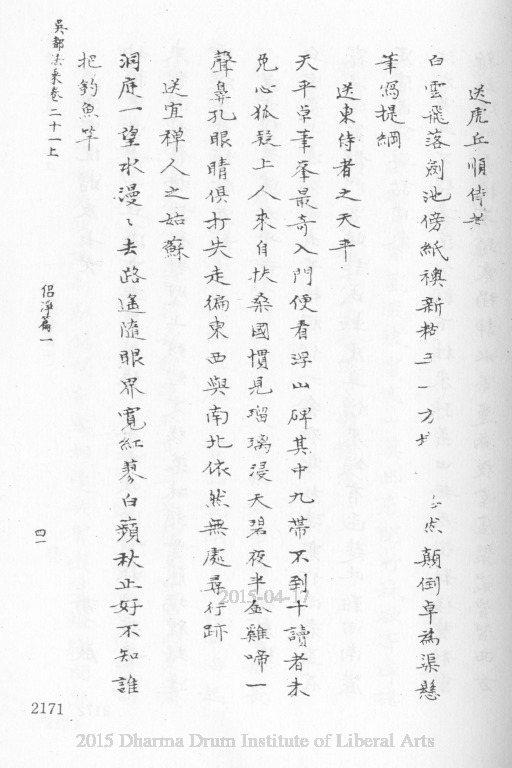 送虎丘順侍者
白雲飛落劍池傍紙襖新糊三一方 顛倒卓為渠懸
筆寫提綱
送東侍者之天平
天平卓筆峯最奇入門便看浮山碑其中九帶不到十讀者未
免心狐疑上人來自扶桑國慣見瑠璃浸天碧夜半金雞啼一
聲鼻孔眼睛俱打失走徧東西與南北依然無處尋行跡
送宜禪人之姑蘇
洞庭一望水漫、去路遙隨眼界寬紅蓼白蘋秋正好不知誰
把釣魚竿
吳都法乘卷二十一上
侶淨篇一
四一
2171
2015-04-17
2015 Dharma Drum Institute of Liberal Arts